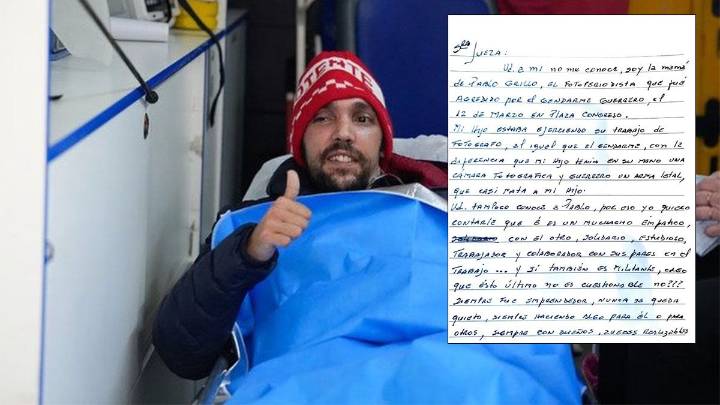 OTECTE
Sra Jueza:
Ud. a mi no me conoce, soy la mamá
de Pablo Grillo, el fotoperiodista que fue
agredido por el gendarme Guerrero, el
12 de marzo en Plaza Congreso.
Mi hijo estaba ejerciendo su trabajo de
fotógrafo, al igual que el gendarme, con la
diferencia que mi hijo tenía en su mano una
cámara fotográfica y Guerrero un arma letal,
que casi mata a mi hijo.
Ud. tampoco conoce a Pablo, por eso yo quiero
contarle que él es un muchacho empático,
con el otro, solidario, estudioso,
trabajador y colaborador con sus pares en el
trabajo... y si también es militante, creo
que ésto último no es cuestionable no???
Siempre fue emprendedor, nunca se queda
quieto, siempre haciendo algo para él o para
otros, siempre con sueños. Juegos realizables